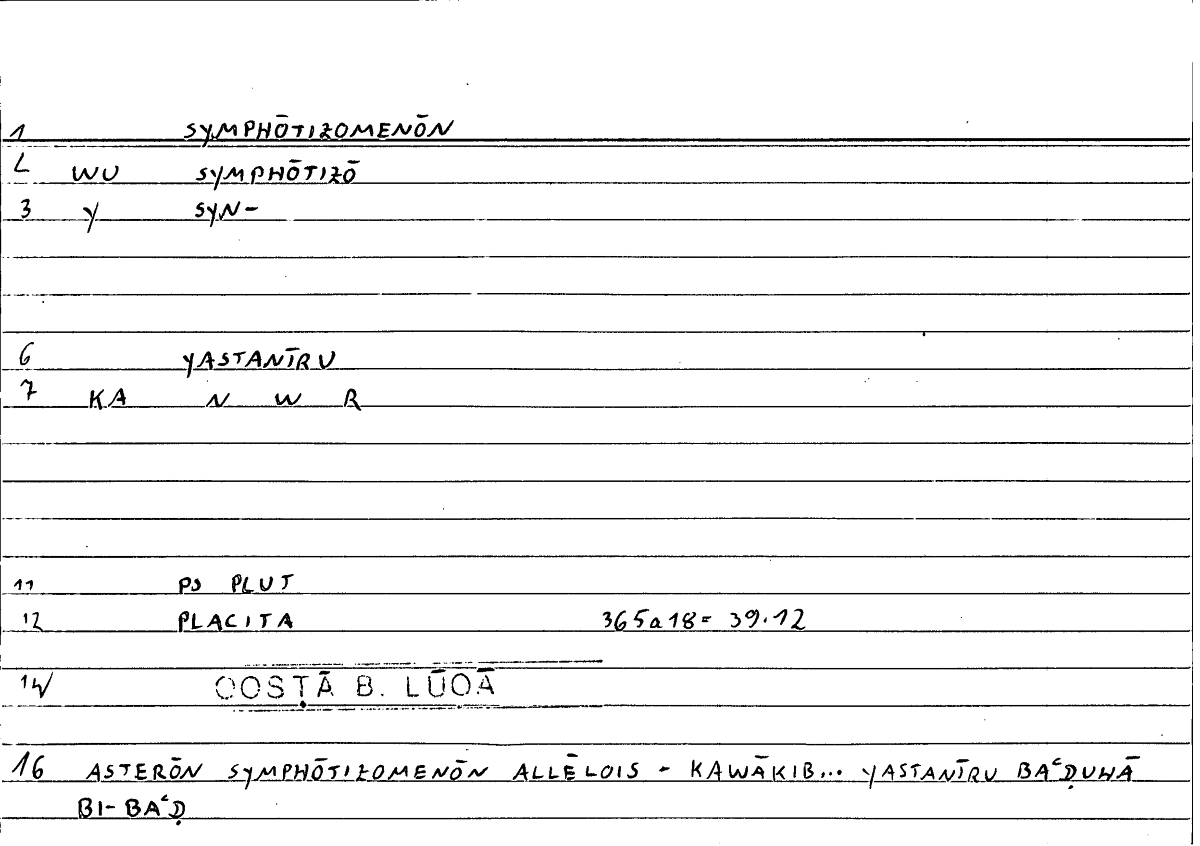 1 SYMPHŌTIZOMENŌN
2 WU SYMPHŌTIZŌ
3 Y SYN-
6 YASTANĪRU
7 KA N W R
11 PS PLUT
12 PLACITA 365a18 = 39.12
14 QOSṬĀ B. LŪQĀ
16 ASTERŌN SYMPHŌTIZOMENŌN ALLĒLOIS - KAWĀKIB... YASTANĪRU BAʿḌUHĀ
BI-BAʿḌ